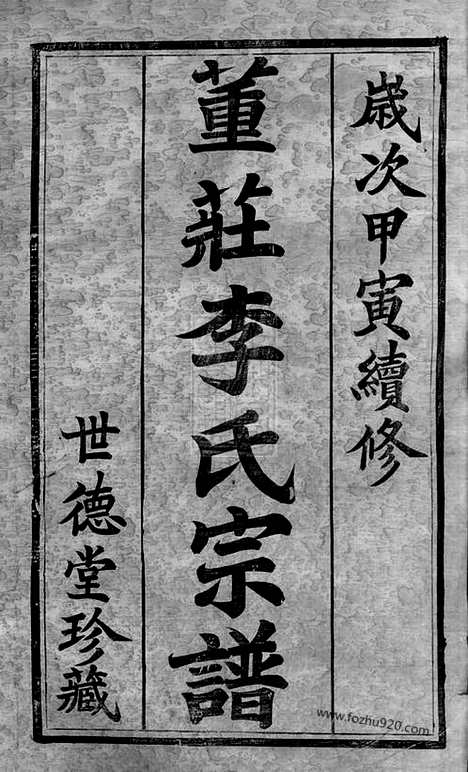 歲次甲寅續修
董莊李氏宗譜
世德堂珍藏
www.fozhu920.com